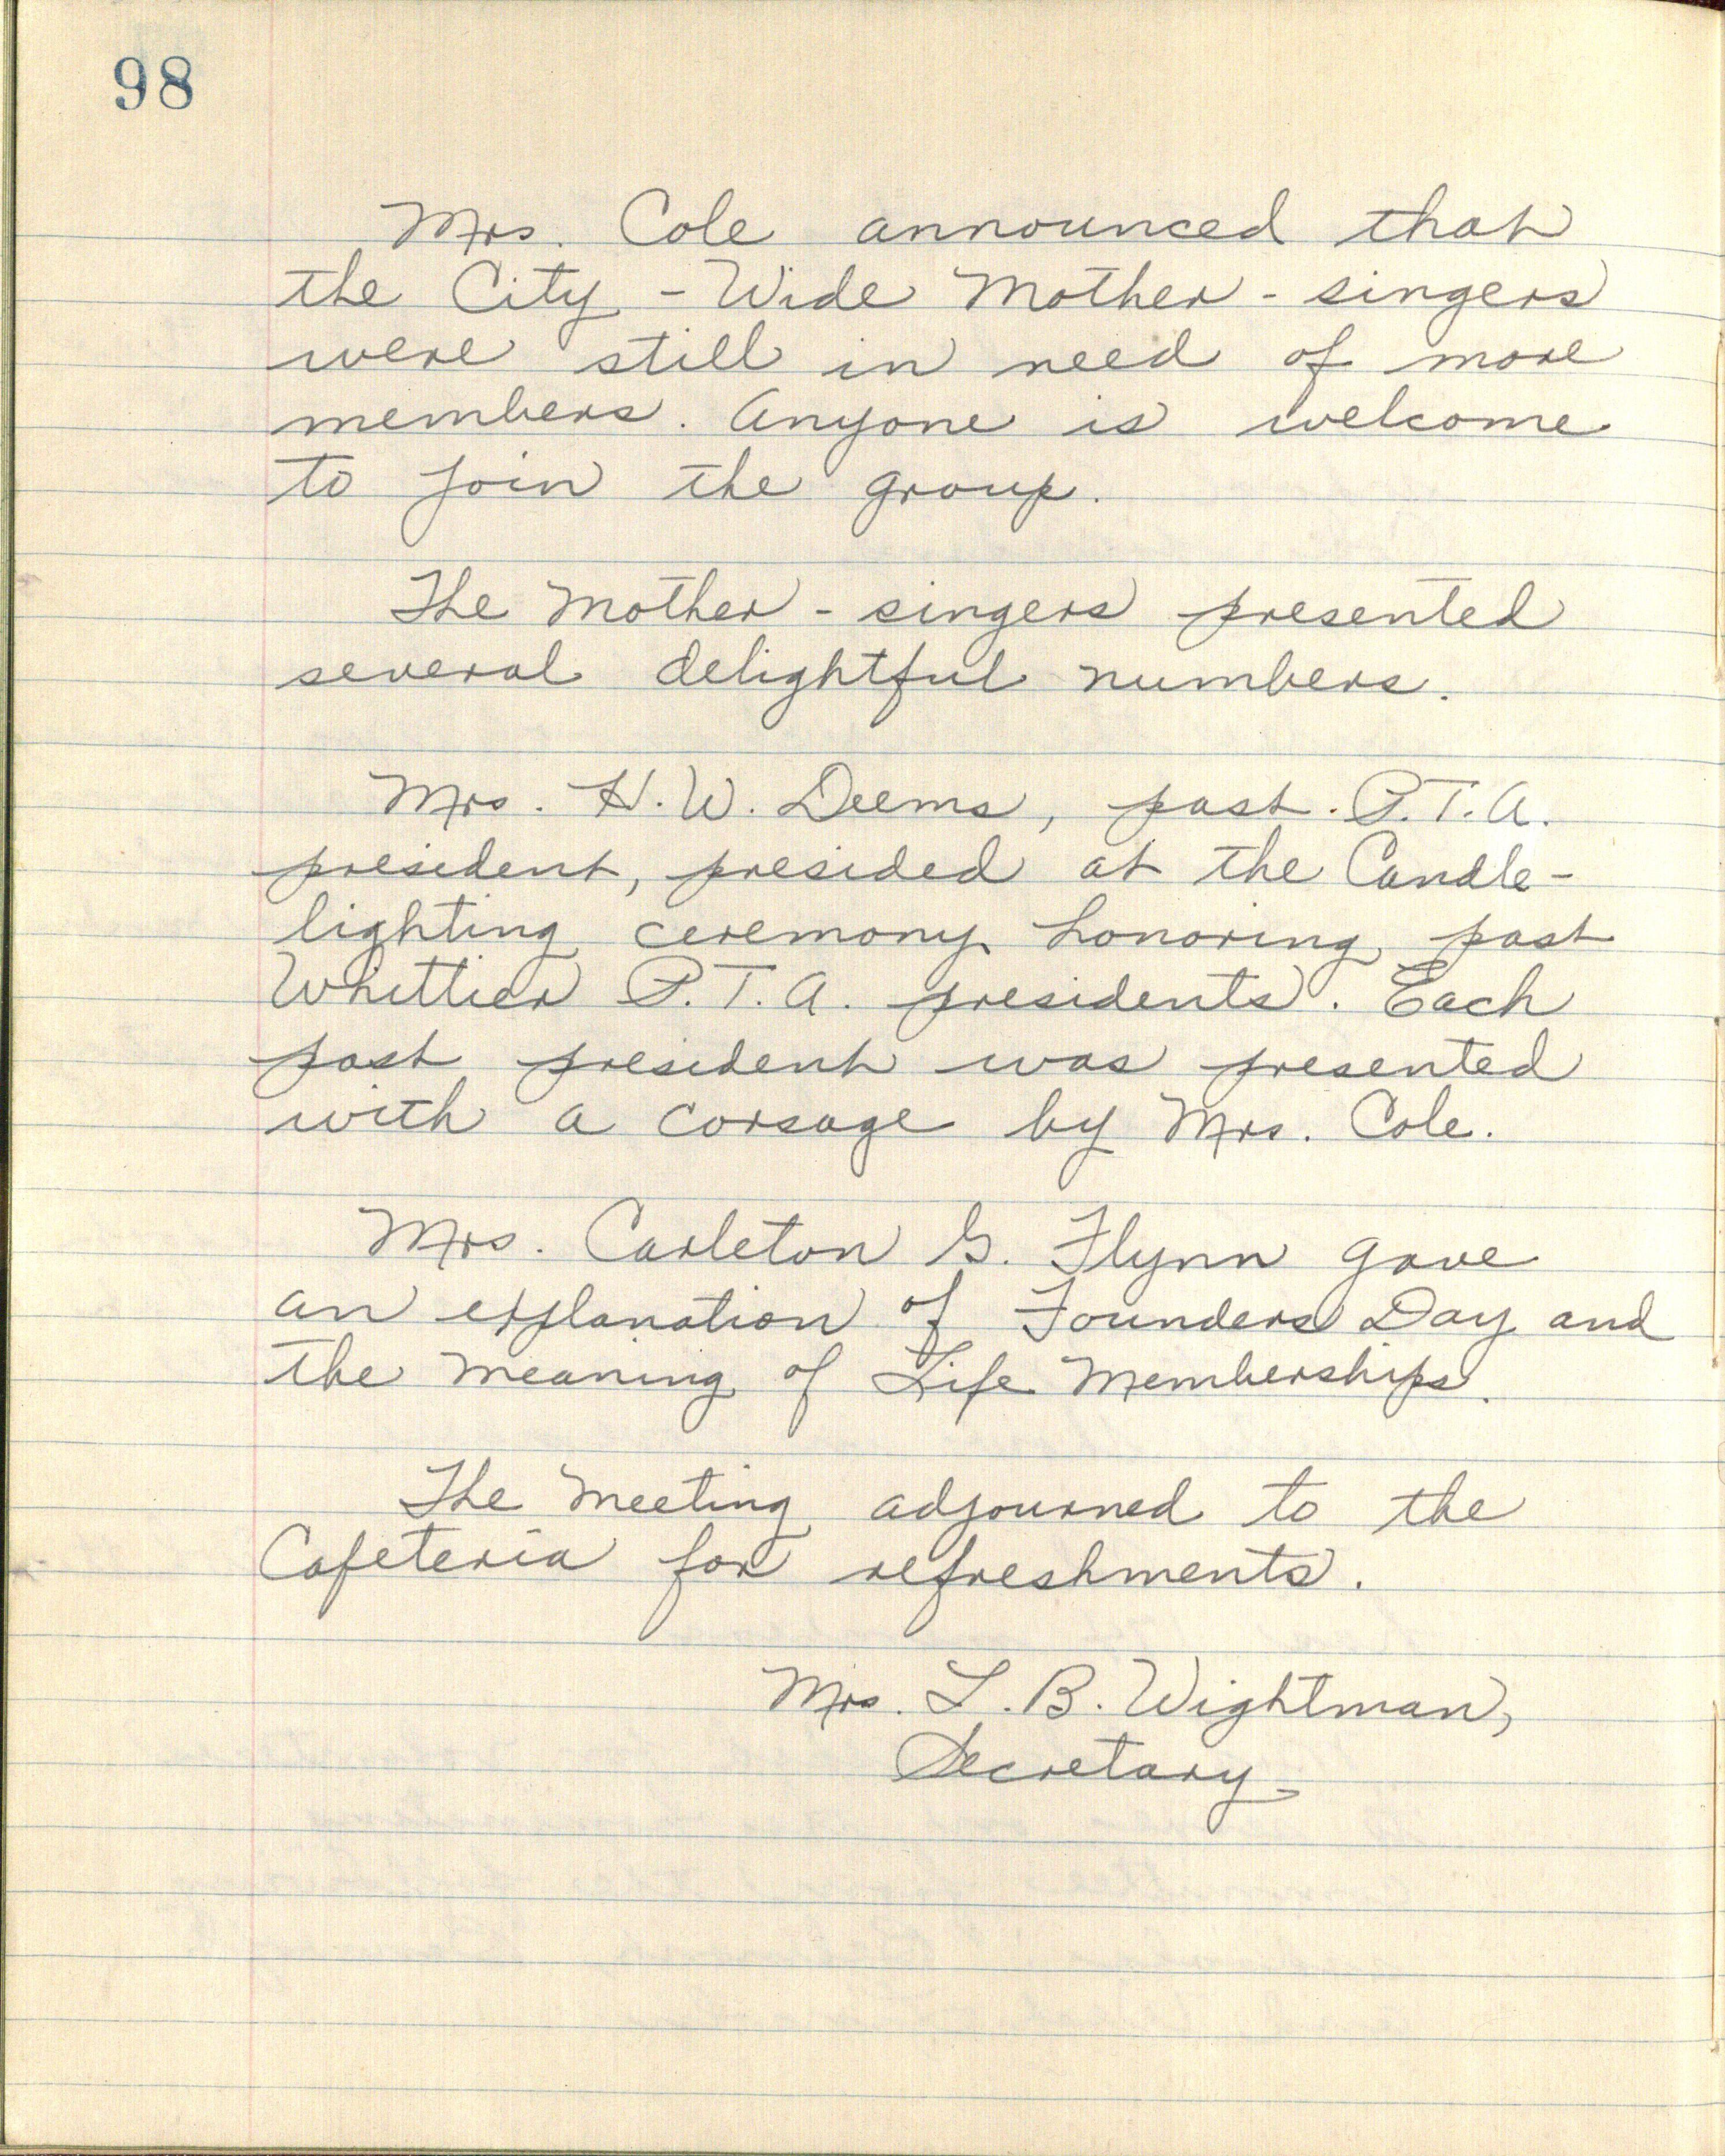 98
Mrs. Cole announced that
the City - Wide Mother - singers
were still in need of more
members. Anyone is welcome
to join the group.
The Mother - singers presented
several delightful numbers.
Mrs. H. W. Deems, past P.T.A.
president, presided at the Candle-
lighting ceremony honoring past
Whittier P.T.A. presidents. Each
past president was presented
with a corsage by Mrs. Cole.
Mrs. Carleton G. Flynn gave
an explanation of Founders Day and
the meaning of Life Memberships.
The meeting adjourned to the
Cafeteria for refreshments.
Mrs. L. B. Wightman,
Secretary